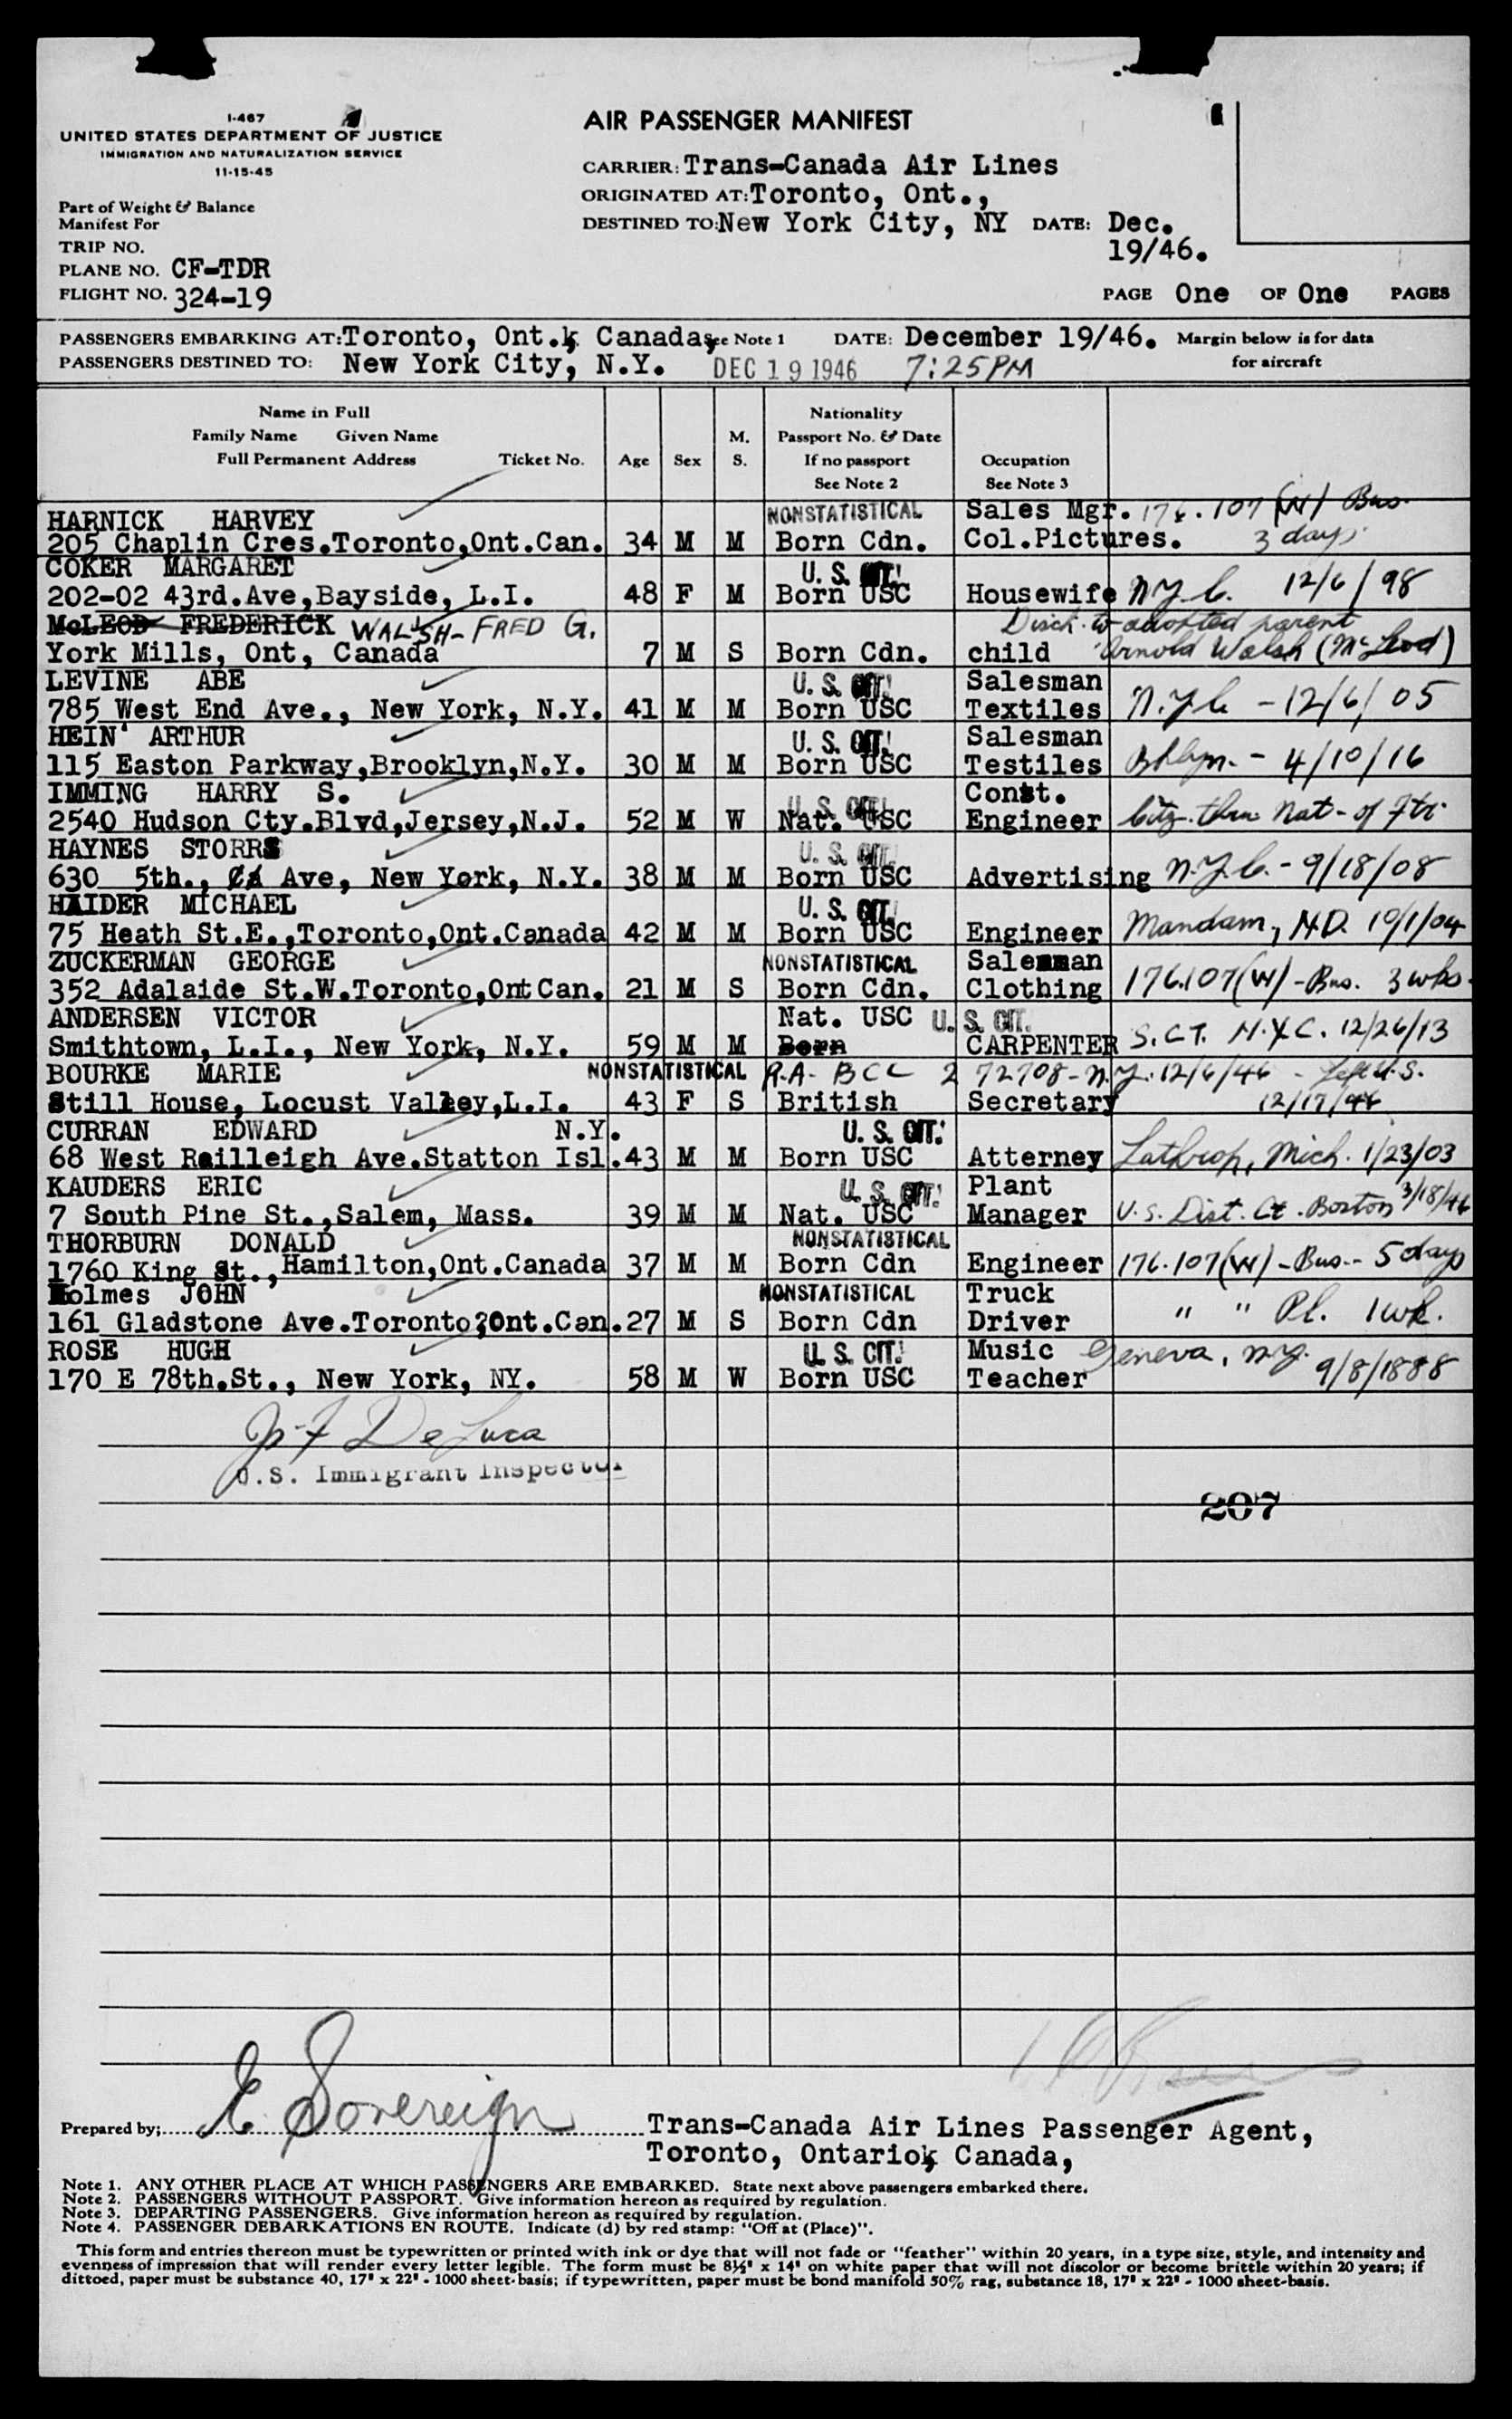 I-467
UNITED STATES DEPARTMENT OF JUSTICE
IMMIGRATION AND NATURALIZATION SERVICE
11-15-45
Part of Weight & Balance
Manifest For
TRIP NO.
PLANE NO. CF-TDR
FLIGHT NO. 324-19
AIR PASSENGER MANIFEST
CARRIER: Trans-Canada Air Lines
ORIGINATED AT: Toronto, Ont.,
DESTINED TO: New York City, NY DATE: Dec.
19/46.
PAGE One OF One PAGES
PASSENGERS EMBARKING AT: Toronto, Ont. Canada, See Note 1 DATE: December 19/46. Margin below is for data
PASSENGERS DESTINED TO: New York City, N.Y. DEC 19 1946 7:25PM for aircraft
Name in Full Nationality
Family Name Given Name M. Passport No. & Date
Full Permanent Address Ticket No. Age Sex S. If no passport Occupation
See Note 2 See Note 3
HARNICK HARVEY NONSTATISTICAL Sales Mgr. 176.107 (W) Bus.
205 Chaplin Cres.Toronto,Ont.Can. 34 M M Born Cdn. Col.Pictures. 3 days.
COKER MARGARET U.S. CIT.
202-02 43rd.Ave,Bayside, L.I. 48 F M Born USC Housewife N.Y.C. 12/6/98
McLEOD FREDERICK WALSH- FRED G. Disch. to adopted parent
York Mills, Ont, Canada 7 M S Born Cdn. child Arnold Walsh (McLeod)
LEVINE ABE U.S. CIT. Salesman
785 West End Ave., New York, N.Y. 41 M M Born USC Textiles N.Y.C. - 12/6/05
HEIN ARTHUR U.S. CIT. Salesman
115 Easton Parkway,Brooklyn,N.Y. 30 M M Born USC Testiles Bklyn. - 4/10/16
IMMING HARRY S. U.S. CIT. Const.
2540 Hudson Cty.Blvd,Jersey,N.J. 52 M W Nat. USC Engineer Citz. thru Nat- of Ftr.
HAYNES STORRS U.S. CIT.
630 5th., Ave, New York, N.Y. 38 M M Born USC Advertising N.Y.C. - 9/18/08
HAIDER MICHAEL U.S. CIT.
75 Heath St.E.,Toronto,Ont.Canada 42 M M Born USC Engineer Mandam, N.D. 10/1/04
ZUCKERMAN GEORGE NONSTATISTICAL Salesman
352 Adalaide St.W.Toronto,Ont Can. 21 M S Born Cdn. Clothing 176.107(W) - Bus. 3 wks.
ANDERSEN VICTOR Nat. USC U.S. CIT.
Smithtown, L.I., New York, N.Y. 59 M M Born CARPENTER S.CT. N.Y.C. 12/26/13
BOURKE MARIE NONSTATISTICAL R.A- BCC 2 72708 - N.Y. 12/6/46 - Left U.S.
Still House, Locust Valley,L.I. 43 F S British Secretary 12/17/46
CURRAN EDWARD N.Y. U.S. CIT.
68 West Railleigh Ave.Statton Isl. 43 M M Born USC Atterney Lathrop, Mich. 1/23/03
KAUDERS ERIC U.S. CIT. Plant
7 South Pine St.,Salem, Mass. 39 M M Nat. USC Manager U.S. Dist. Ct. Boston 3/18/46
THORBURN DONALD NONSTATISTICAL
1760 King St., Hamilton,Ont.Canada 37 M M Born Cdn Engineer 176.107(W) - Bus.- 5 days
Holmes JOHN NONSTATISTICAL Truck
161 Gladstone Ave.Toronto,Ont.Can. 27 M S Born Cdn Driver " " Pl. 1 wk.
ROSE HUGH U.S. CIT. Music
170 E 78th.St., New York, NY. 58 M W Born USC Teacher Geneva, N.Y. 9/8/1888
J.F DeLuca
U.S. Immigrant Inspector
207
Prepared by: E. Sovereign Trans-Canada Air Lines Passenger Agent,
Toronto, Ontario, Canada,
Note 1. ANY OTHER PLACE AT WHICH PASSENGERS ARE EMBARKED. State next above passengers embarked there.
Note 2. PASSENGERS WITHOUT PASSPORT. Give information hereon as required by regulation.
Note 3. DEPARTING PASSENGERS. Give information hereon as required by regulation.
Note 4. PASSENGER DEBARKATIONS EN ROUTE. Indicate (d) by red stamp: "Off at (Place)".
This form and entries thereon must be typewritten or printed with ink or dye that will not fade or "feather" within 20 years, in a type size, style, and intensity and
evenness of impression that will render every letter legible. The form must be 8½" x 14" on white paper that will not discolor or become brittle within 20 years; if
dittoed, paper must be substance 40, 17" x 22" - 1000 sheet-basis; if typewritten, paper must be bond manifold 50% rag, substance 18, 17" x 22" - 1000 sheet-basis.